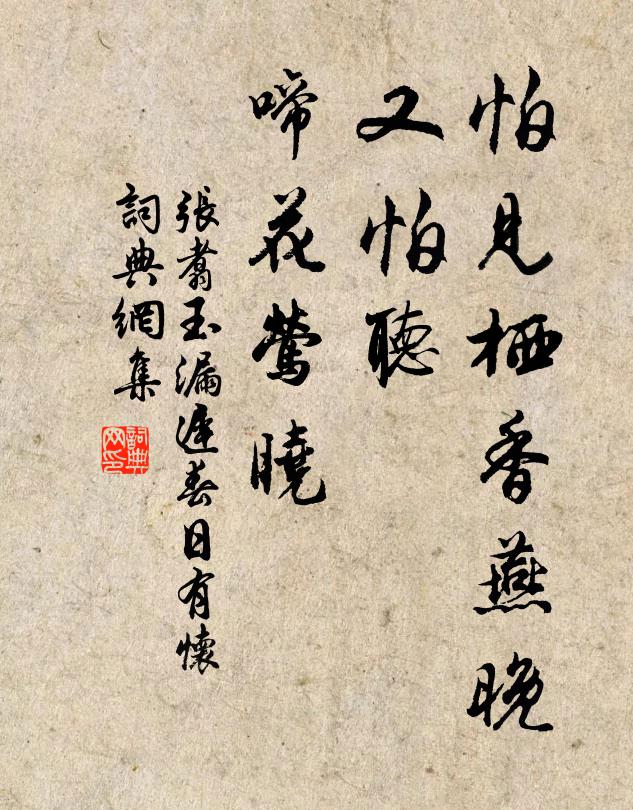 怕見栖香燕晚
又怕聽
啼花鶯曉
張翥玉漏遲春日有懷
詞典網集
詞典
网印